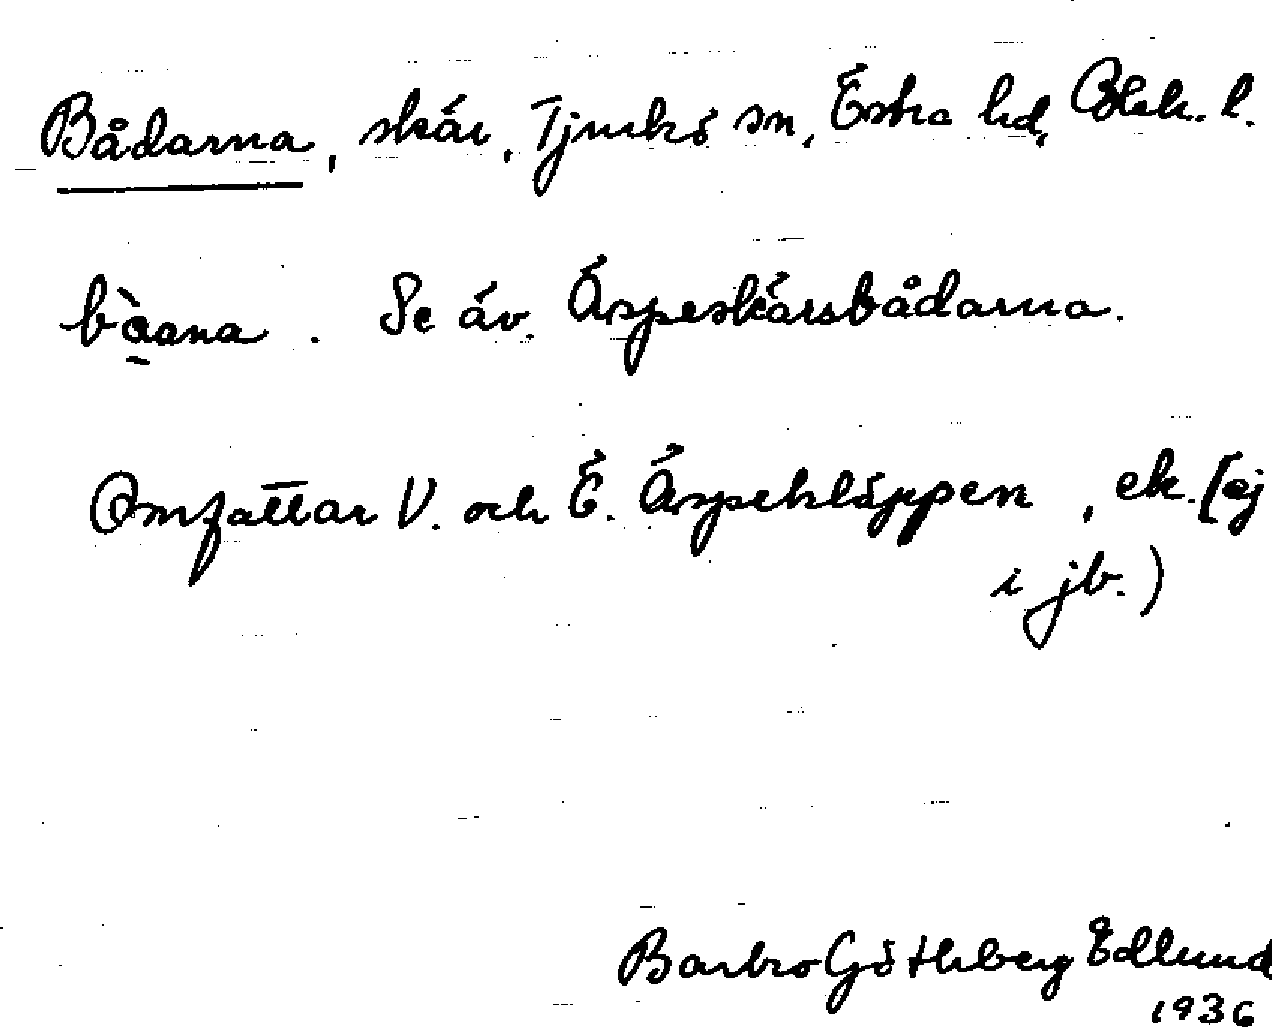 Bådarna, skär, Tjurkö sn, Östra hd, Blek. l.
bàana. Se äv. Äspeskärsbådarna.
Omfattar V. och Ö. Äspekläppen, ek. (ej
i jb.)
Barbro Götherberg Edlund
1936